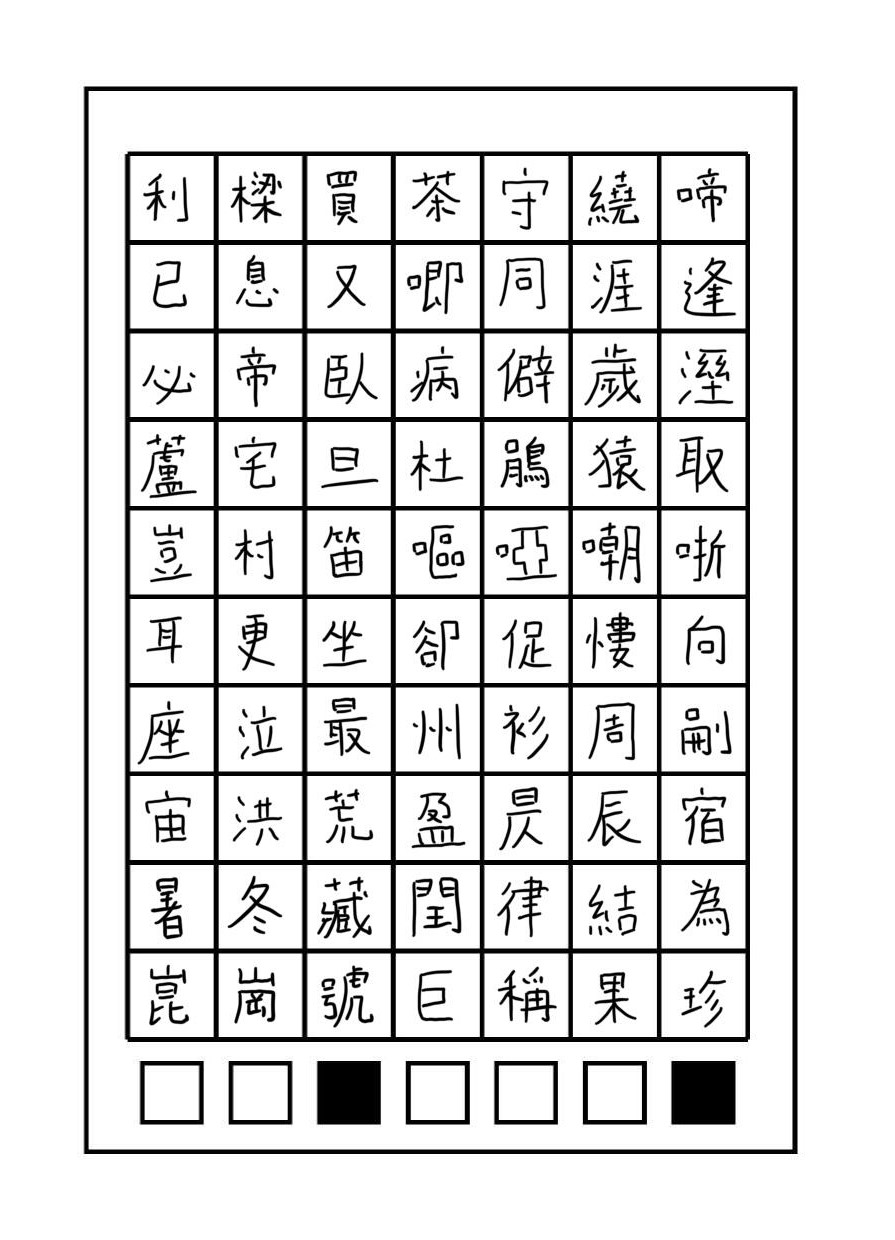 利樑買茶守繞啼
已息又唧同涯逢
必帝臥病僻歲溼
蘆宅旦杜鵑猿取
豈村笛嘔啞嘲哳
耳更坐卻促慺向
座泣最州衫周剮
宙洪荒盈昃辰宿
暑冬藏閏律結為
崑崗號巨稱果珍